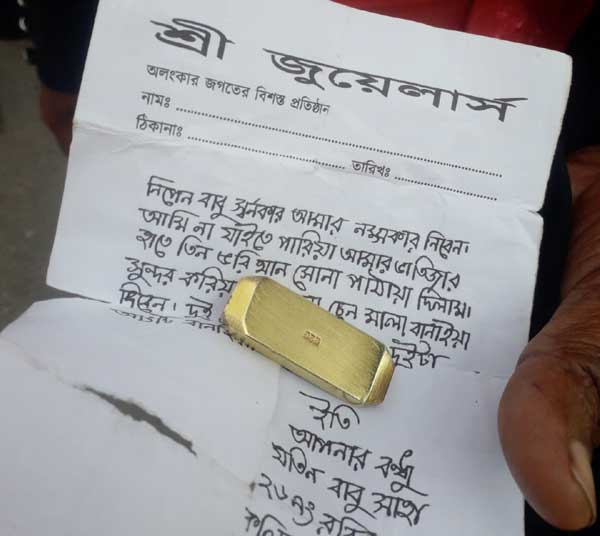 শ্রী জুয়েলার্স
অলংকার জগতের বিশস্ত প্রতিষ্ঠান
নামঃ
ঠিকানাঃ
তারিখঃ
নিপেন বাবু স্বর্নকার আমার নমস্কার নিবেন।
আমি না যাইতে পারিয়া আমার ভাতিজার
হাতে তিন ভরি খান সোনা পাঠায়া দিলাম।
সুন্দর করিয়া চেন মালা বানাইয়া
দিবেন। দুই দুইটা
ইতি
আপনার বন্ধু
যতিন বাবু সাহা
২৬নং